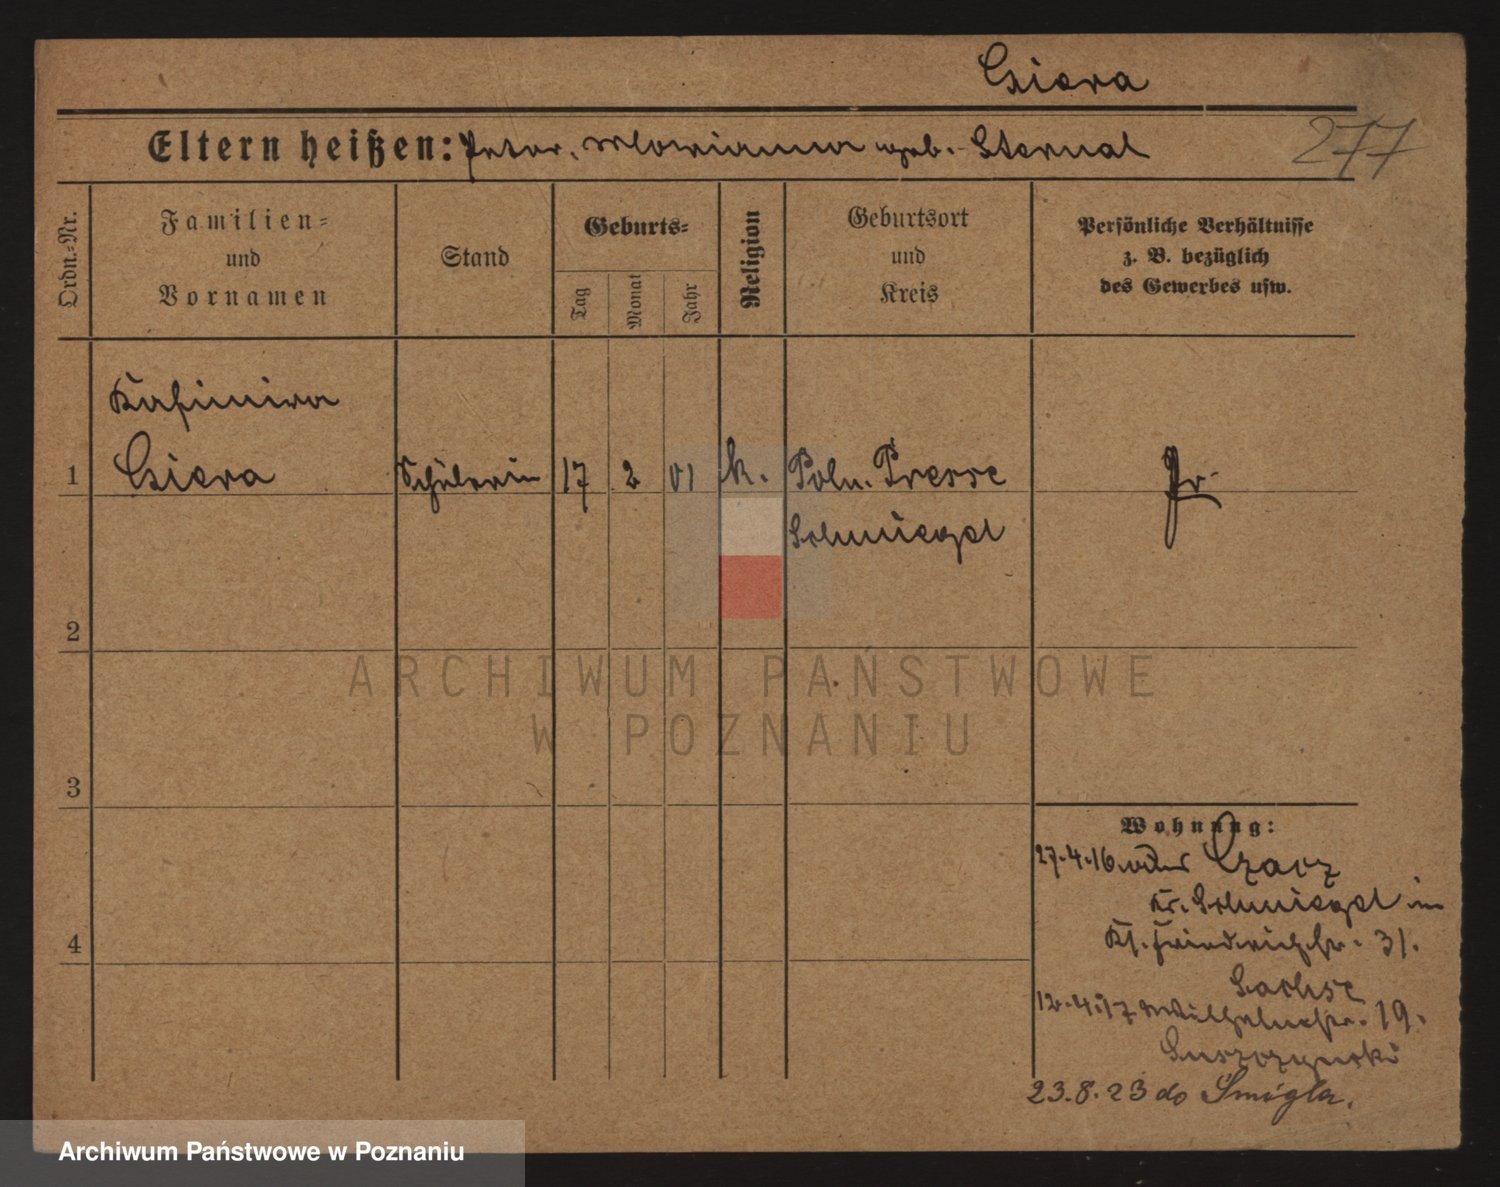 Cziera
Eltern heißen: Peter, Maryanna geb. Sternal
277
Ordn.-Nr.
Familien-
und
Vornamen
Stand
Geburts-
Tag
Monat
Jahr
Religion
Geburtsort
und
Kreis
Persönliche Verhältnisse
z. B. bezüglich
des Gewerbes usw.
Kasimira
1 Cziera Schülerin 17 2 01 k. Poln. Presse Pr.
Schmiegel
2
3
4
Wohnung:
27.4.16 Czacz
Kr. Schmiegel in
Kl. Friedrichstr. 31.
Sachse
12.4.17 Wilhelmstr. 19.
23.8.23 do Śmigla.
ARCHIWUM PAŃSTWOWE
W POZNANIU
Archiwum Państwowe w Poznaniu